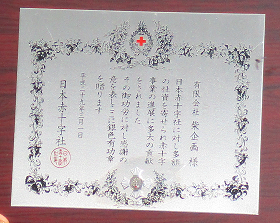 有限会社 柴企画 様
日本赤十字社に対し多額
の住資を寄せられ赤十字
事業の進展に多大の貢献
をされました
その御功労に対し感謝の
意を表しここに銀色有功章
を贈ります
平成二十九年三月一日
日本赤十字社